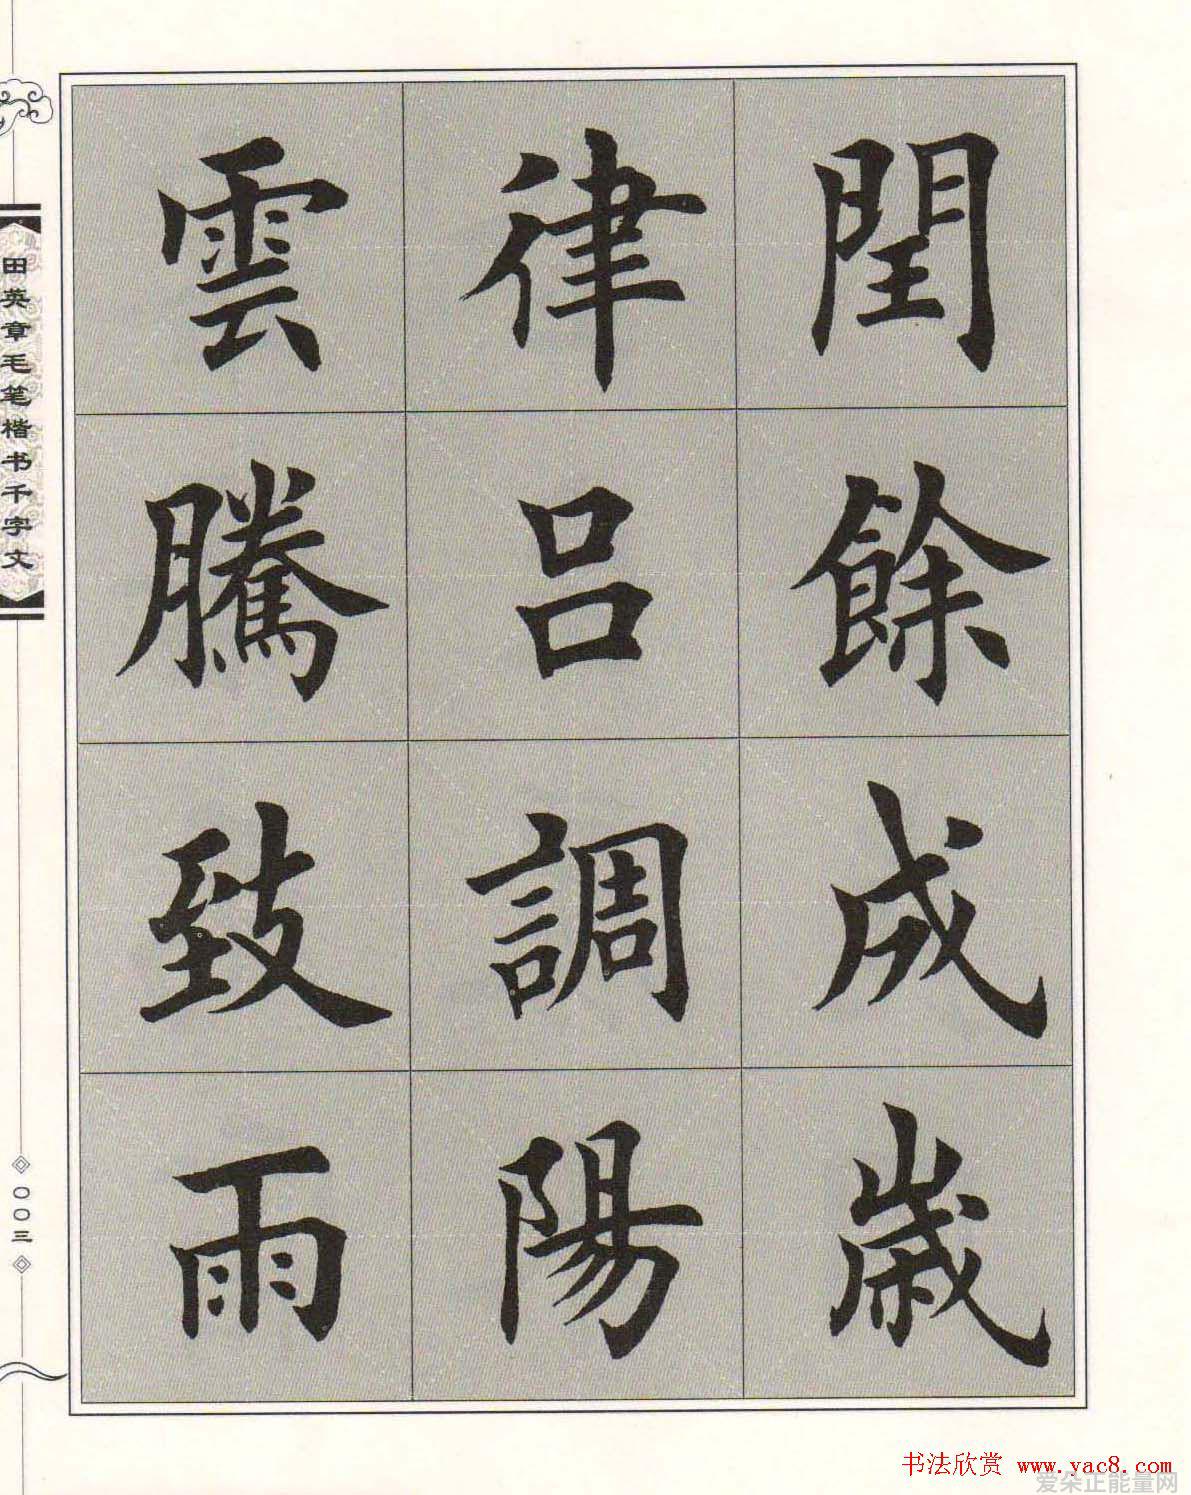 閏餘成歲
律呂調陽
雲騰致雨
田英章毛笔楷书千字文
〇〇三
书法欣赏 www.yac8.com
爱朵正能量网